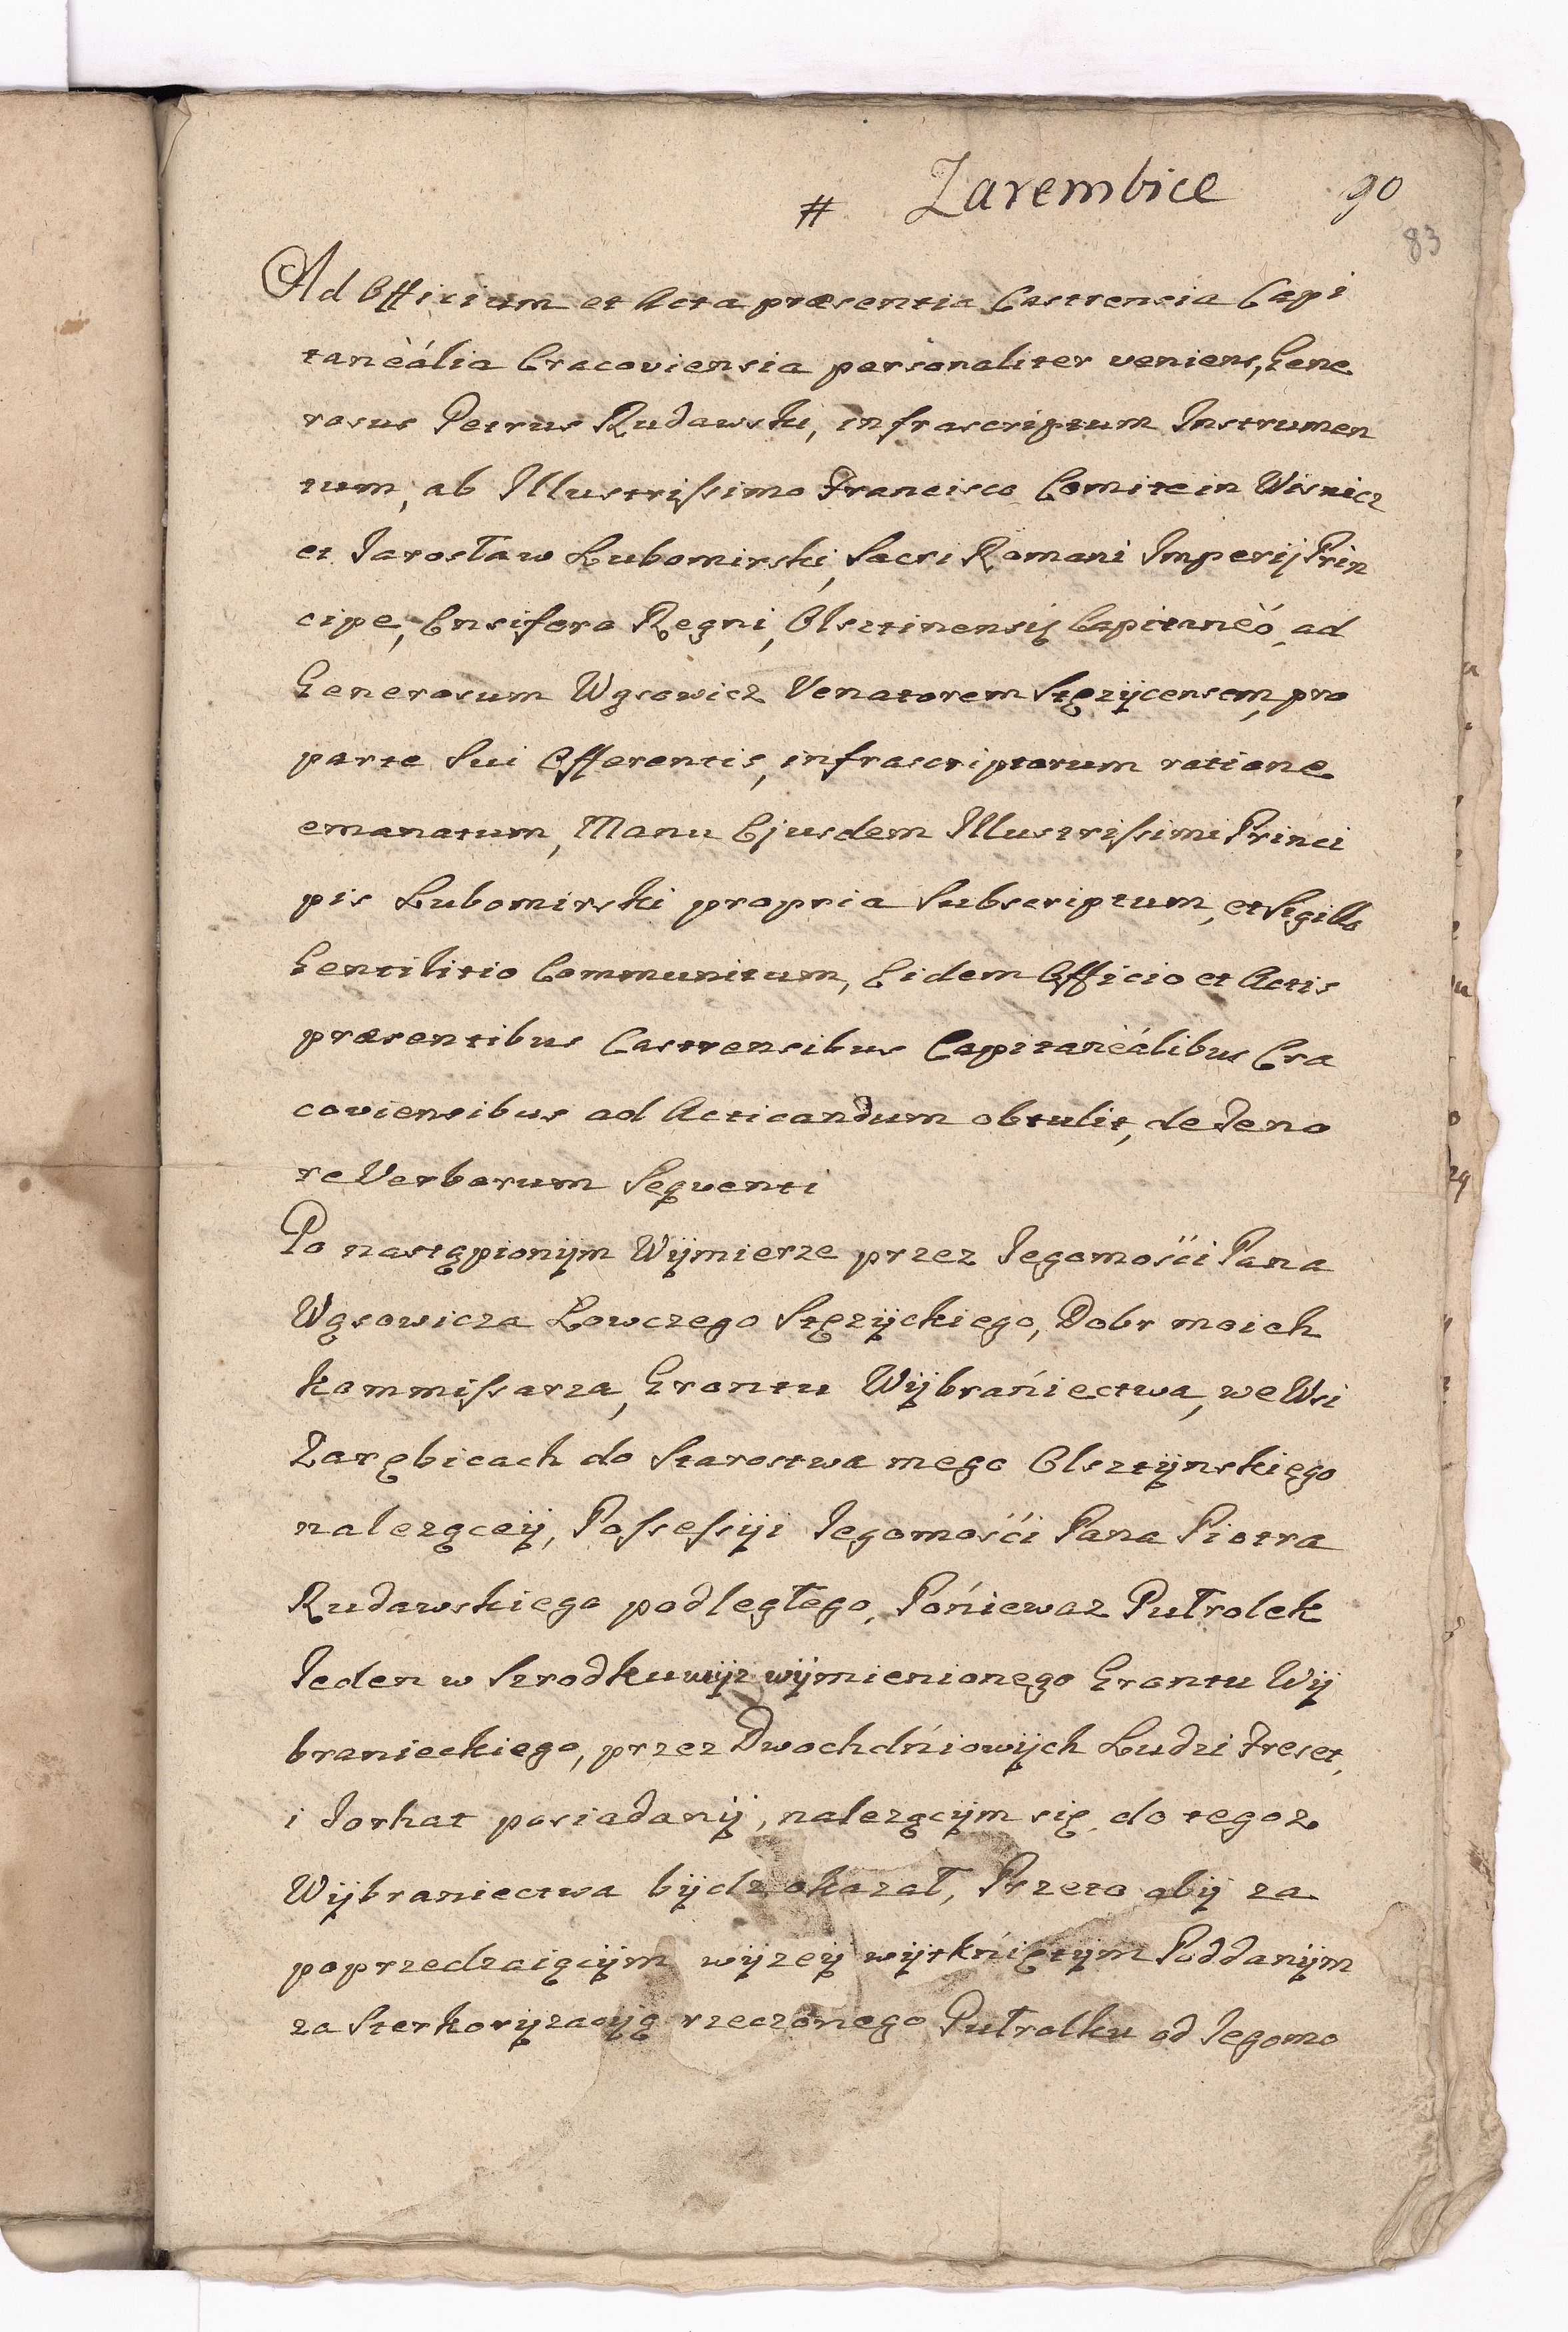 # Zarembice 90
83
Ad Officium et Acta præsentia Castrensia Capi
tanèália Cracoviensia personaliter veniens, Gene
rosus Petrus Rudawski, infrascriptum Instrumen
tum, ab Illustrissimo Francisco Comite in Wisnicz
et Jarosław Lubomirski, Sacri Romani Imperij Prin
cipe, Ensifero Regni, Olsztinensij Capitanèó, ad
Generosum Wąsowicz Venatorem Stęzÿcensem, pro
parte Sui Offerentis, infrascriptorum ratione
emanatum, Manu Ejusdem Illustrissimi Princi
pis Lubomirski propria Subscriptum, et Sigillo
Gentilitio Communitum, Eidem Officio et Actis
præsentibus Castrensibus Capitanèálibus Cra
coviensibus ad Acticandum obtulit, de Teno
re Verborum Seqventi
Po nastąpionÿm Wÿmierze przez Jegomośći Pana
Wąsowicza Łowczego Stęzÿckiego, Dobr moich
kommissarza, Grontu Wÿbrańiectwa, we Wsi
Zarębicach do Starostwa mego Olsztÿnskiego
naleząceÿ, Possessÿi Jegomośći Pana Piotra
Rudawskiego podległego, Pońiewaz Pułrolek
Jeden w Szrodku wÿz wÿmienionego Grontu Wÿ
branieckiego, przez Dwochdńiowÿch Ludzi Freset,
i Jorhat posiadanÿ, nalezącÿm się do tegoz
Wÿbraniectwa bÿdz okazał, Przeto abÿ za
poprzedzaiącÿm wÿzeÿ wÿtkńiętÿm Poddanÿm
za Sterkorÿzacÿą rzeczonego Pułrolku od Jegomo